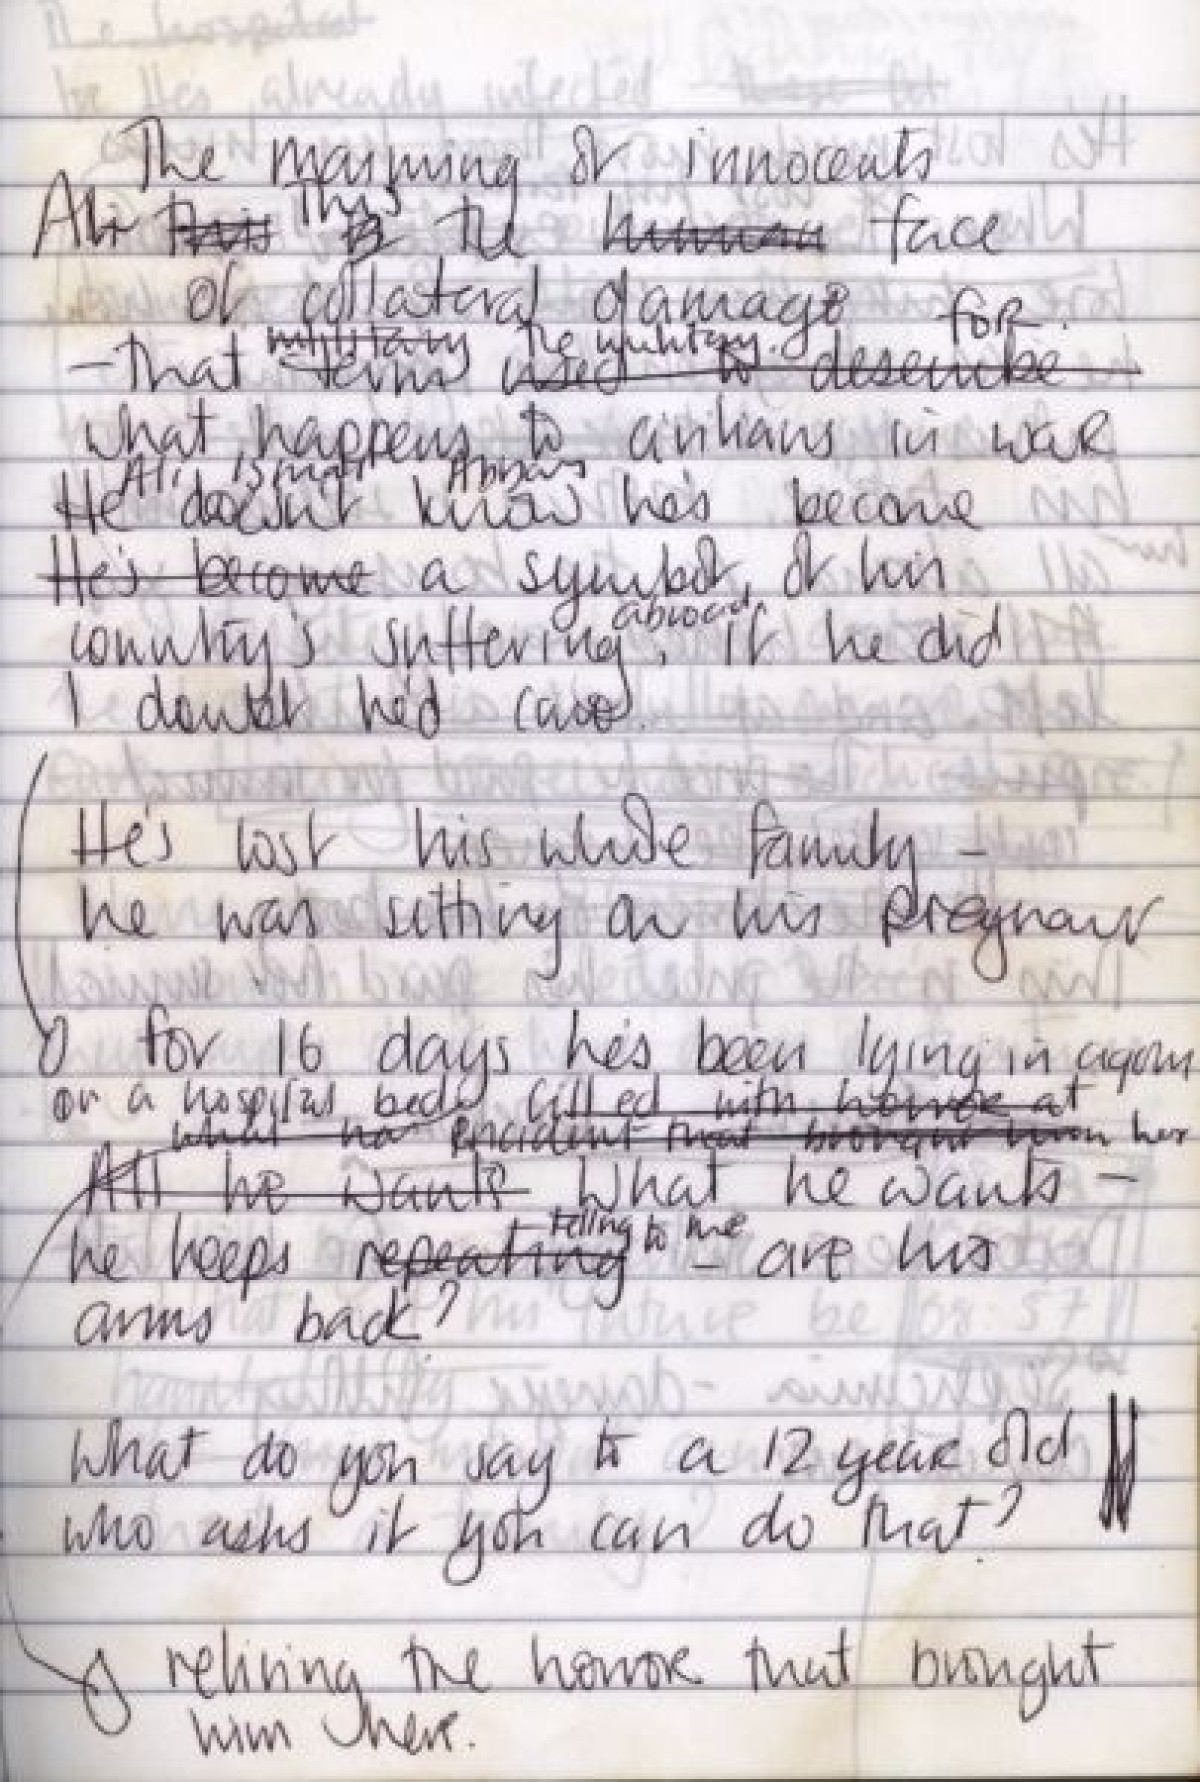 The maiming of innocents
Ali This This is the human face
of collateral damage
military the military. for
- that term used to describe
what happens to civilians in war
Ali Ismail Abbas
He doesn't know he's become
He's become a symbol, of his
abroad
country's suffering, if he did
I doubt he'd care.
He's lost his whole family -
he was sitting on his pregnant
for 16 days he's been lying in agony
on a hospital bed filled with horror at
what incident that brought him her
All he wants What he wants -
telling to me
he keeps repeating - are his
arms back?
What do you say to a 12 year old
who asks if you can do that?
reliving the horror that brought
him here.